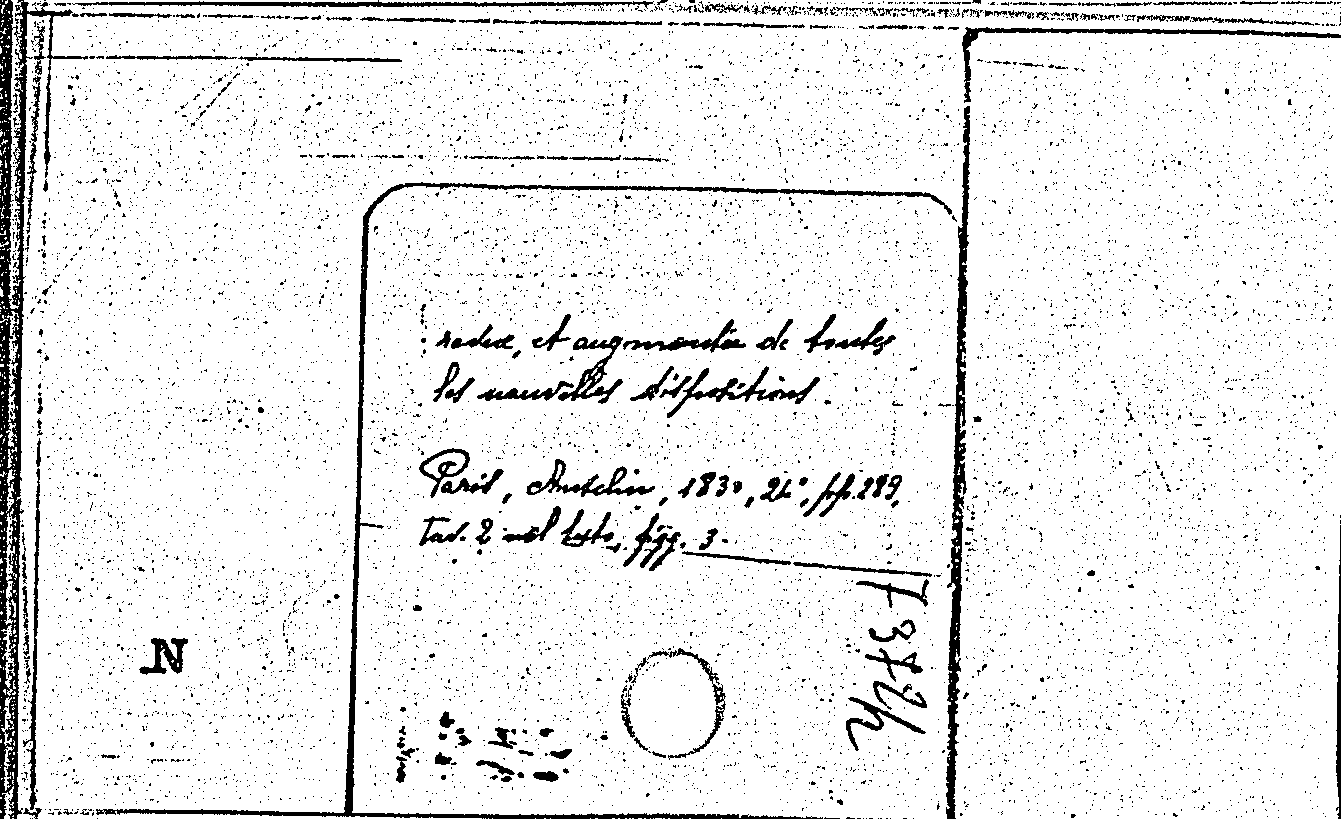 et augmentée de toutes
les nouvelles dispositions.
Paris, Anselin, 1830, 24°, pp. 289,
tav. 2 nel testo, figg. 3.
N